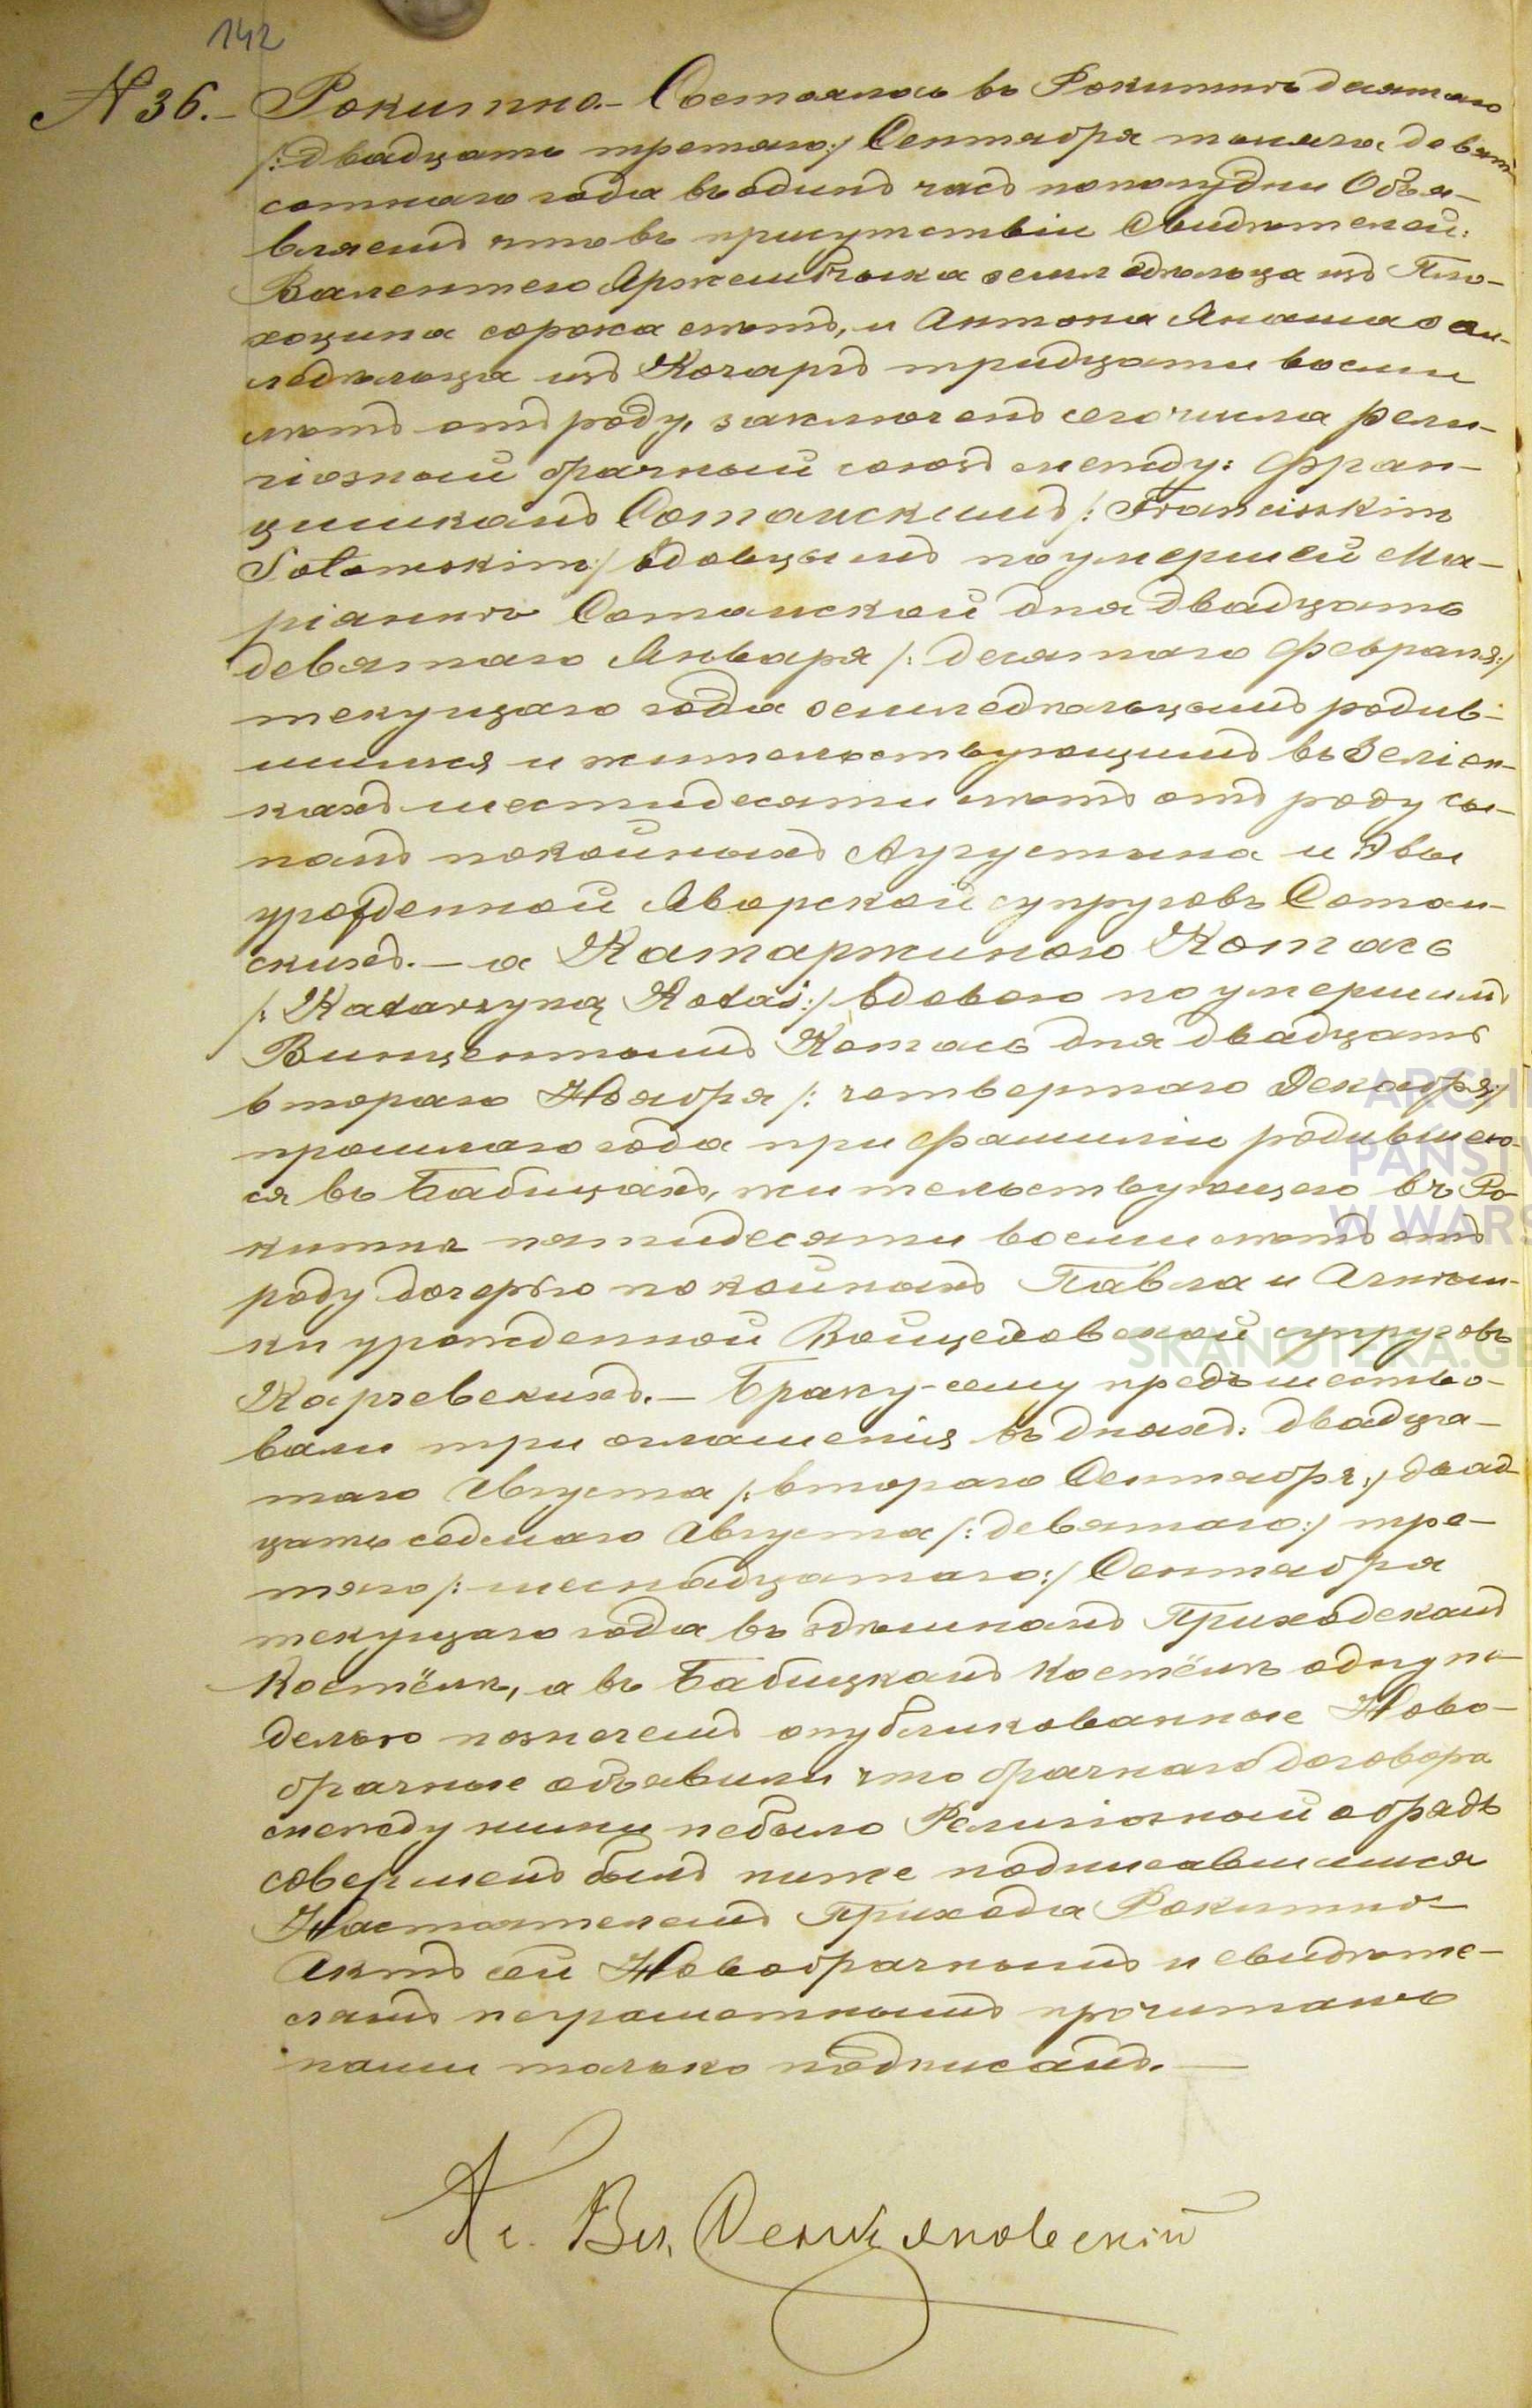 142
N 36. – Рокитно. – Состоялось въ Рокитнѣ десятаго
/: двадцать третяго :/ Сентября тысяча девять
сотнаго года въ одинъ часъ пополудни Объя-
вляемъ что въ присутствіи Свидѣтелей:
Валентего земледѣльца изъ Пло-
хоцина сорока лѣтъ, и Антона зем-
ледѣльца изъ Кочаръ тридцати восьми
лѣтъ отъ роду, заключенъ сего числа рели-
гіозный брачный союзъ между: Фран-
цишкомъ Сотомскимъ /: Franciszkim
Sotomskim :/ вдовцымъ по умершей Ма-
ріаннѣ Сотомской дня двадцать
девятаго Января /: десятаго Февраля :/
текущаго года земледѣльцымъ родив-
шимся и жительствующимъ въ Зеліон-
кахъ шестидесяти лѣтъ отъ роду сы-
номъ покойныхъ Аугустына и Эвы
урожденной Яворской супруговъ Сотом-
скихъ. – а Катаржиною Котась
/: Katarzyną Kotaś :/ вдовою по умершимъ
Винцентымъ Котась дня двадцать
втораго Ноября /: четвертаго Декабря :/
прошлаго года при фамиліи родившею-
ся въ Бабицахъ, жительствующею въ Ро-
китнѣ пятидесяти восьми лѣтъ отъ
роду дочерью покойныхъ Павла и Агнѣш-
ки урожденной Войцеховской супруговъ
Карчевскихъ. – Браку сему предшество-
вали три оглашенія въ дняхъ: двадца-
таго Августа /: втораго Сентября :/ двад-
цать седмаго Августа /: девятаго :/ тре-
тяго /: шеснадцатаго :/ Сентября
текущаго года въ здѣшномъ Приходскомъ
Костёлѣ, а въ Бабицкомъ Костёлѣ одну не-
делю позначемъ опубликованные Ново-
брачные объявили что брачнаго договора
между ними небыло Религіозный обрядъ
совершенъ былъ ниже подписавшимся
Настоятелемъ Прихода Рокитно –
Актъ сей Новобрачнымъ и свидѣте-
лямъ неграмотнымъ прочитанъ
нами только подписанъ. –
Кс. Вл.
ARCHI
PAŃSTW
W WARS
SKANOTEKA.GE